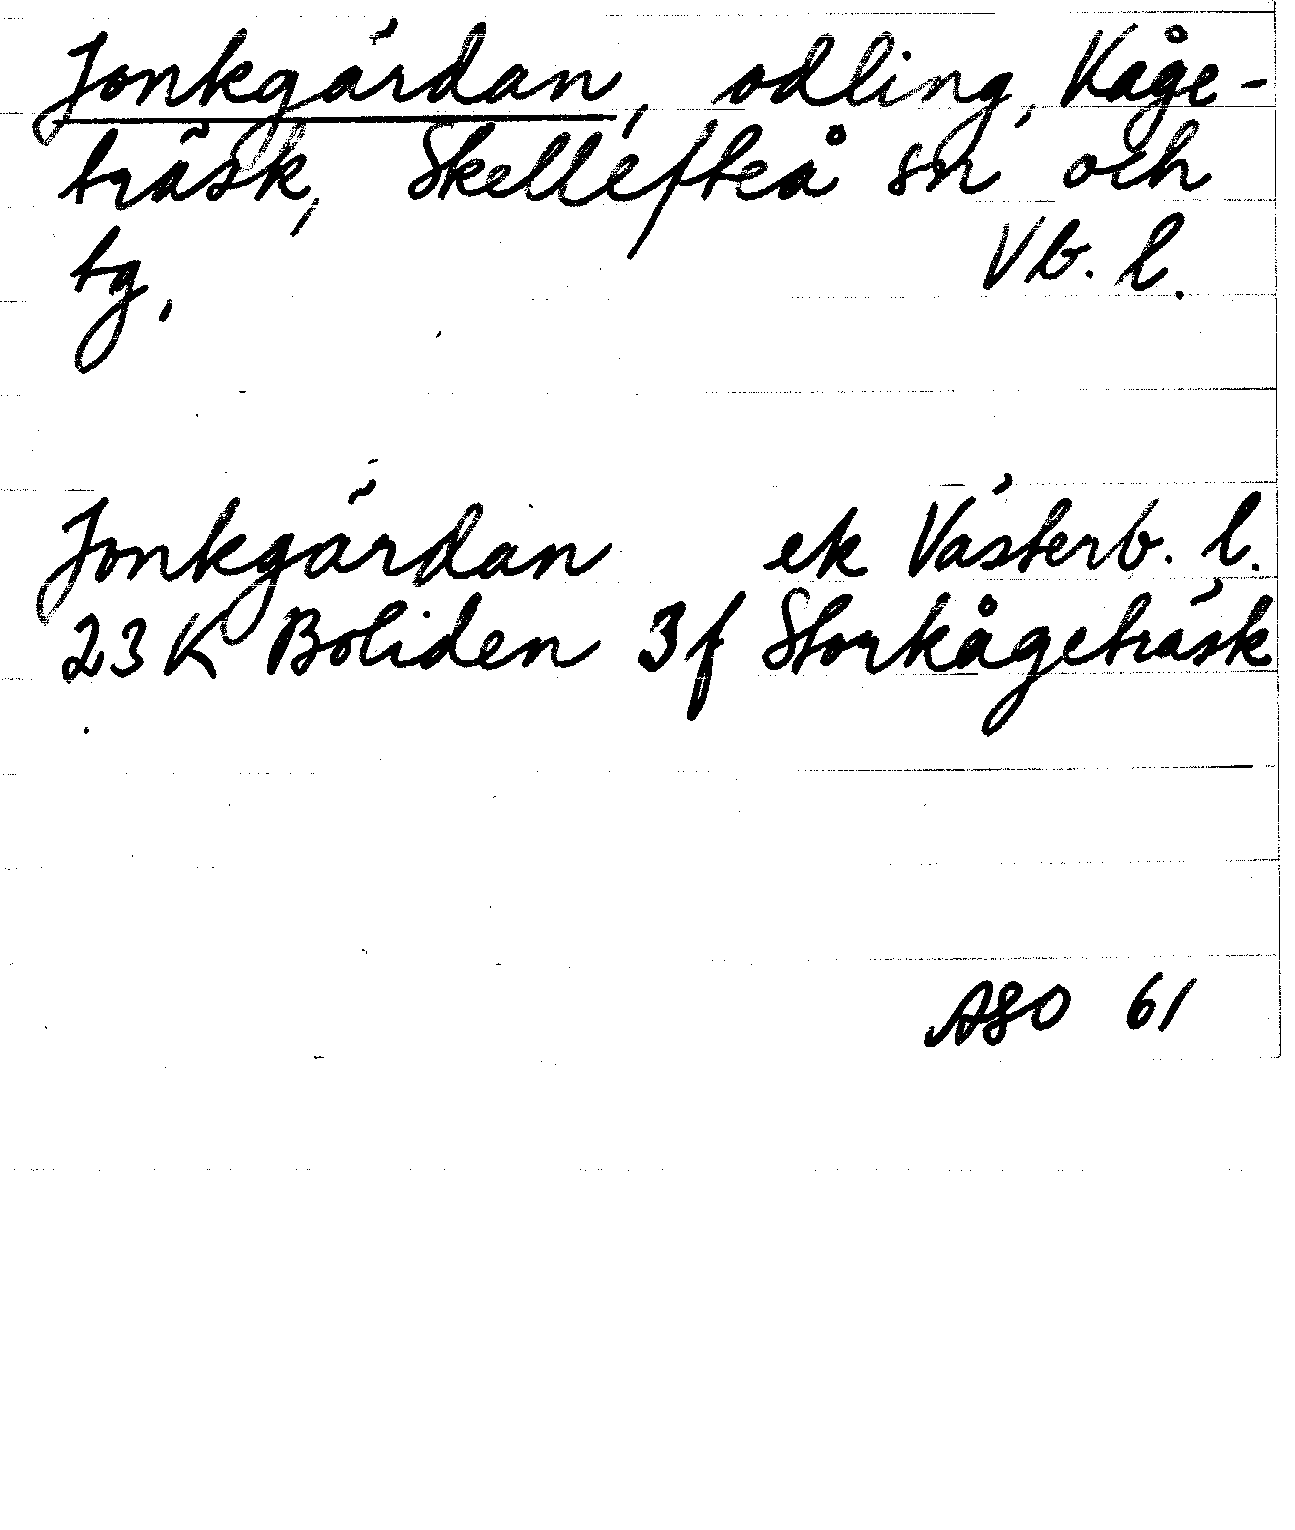 Jonkgärdan, odling, Kåge-
träsk, Skellefteå sn och
tg. Vb. l.
Jonkgärdan ek Västerb. l.
23 K Boliden 3f Storkågeträsk
ASO 61